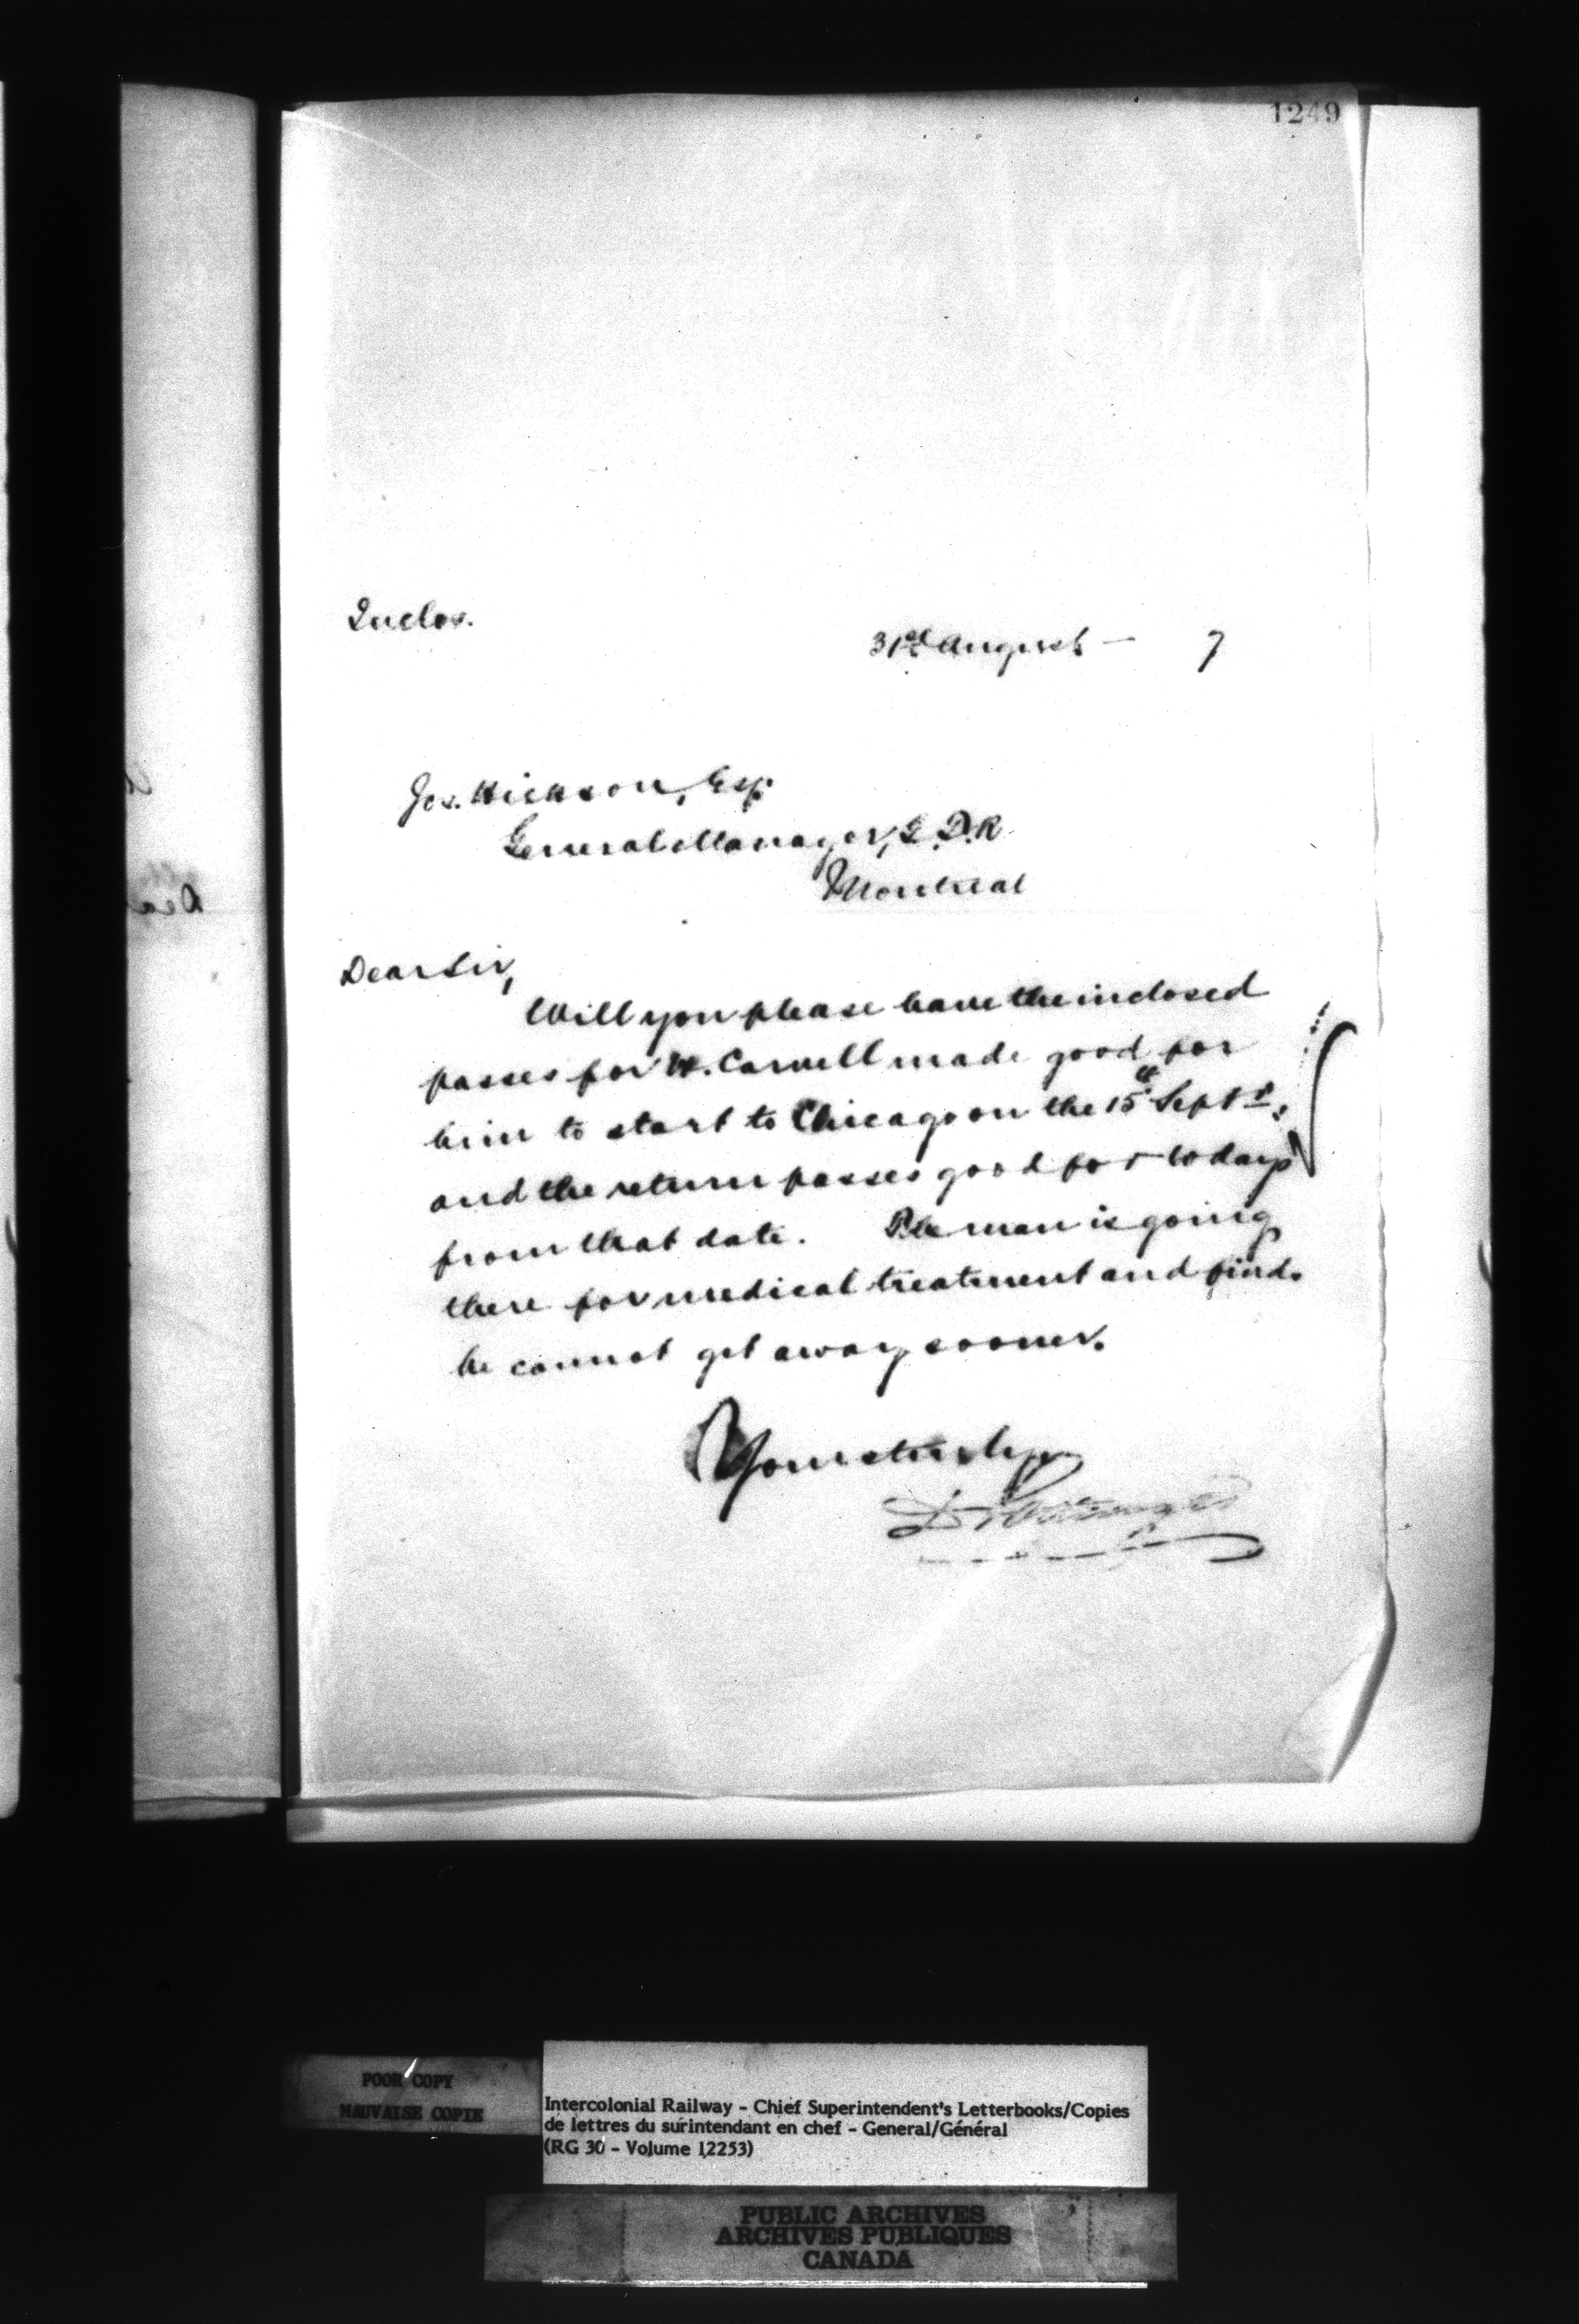 1249
Inclos.
31st August — 7
Jos. Hickson, Esq.
General Manager, G.T.R.
Montreal
Dear Sir,
Will you please have the inclosed
passes for W. Carvell made good for
him to start to Chicago on the 15th Septr,
and the return passes good for 60 days
from that date. The man is going
there for medical treatment and finds
he cannot get away sooner.
Yours truly
D. Pottinger
POOR COPY
MAUVAISE COPIE
Intercolonial Railway - Chief Superintendent's Letterbooks/Copies
de lettres du surintendant en chef - General/Général
(RG 30 - Volume 12253)
PUBLIC ARCHIVES
ARCHIVES PUBLIQUES
CANADA